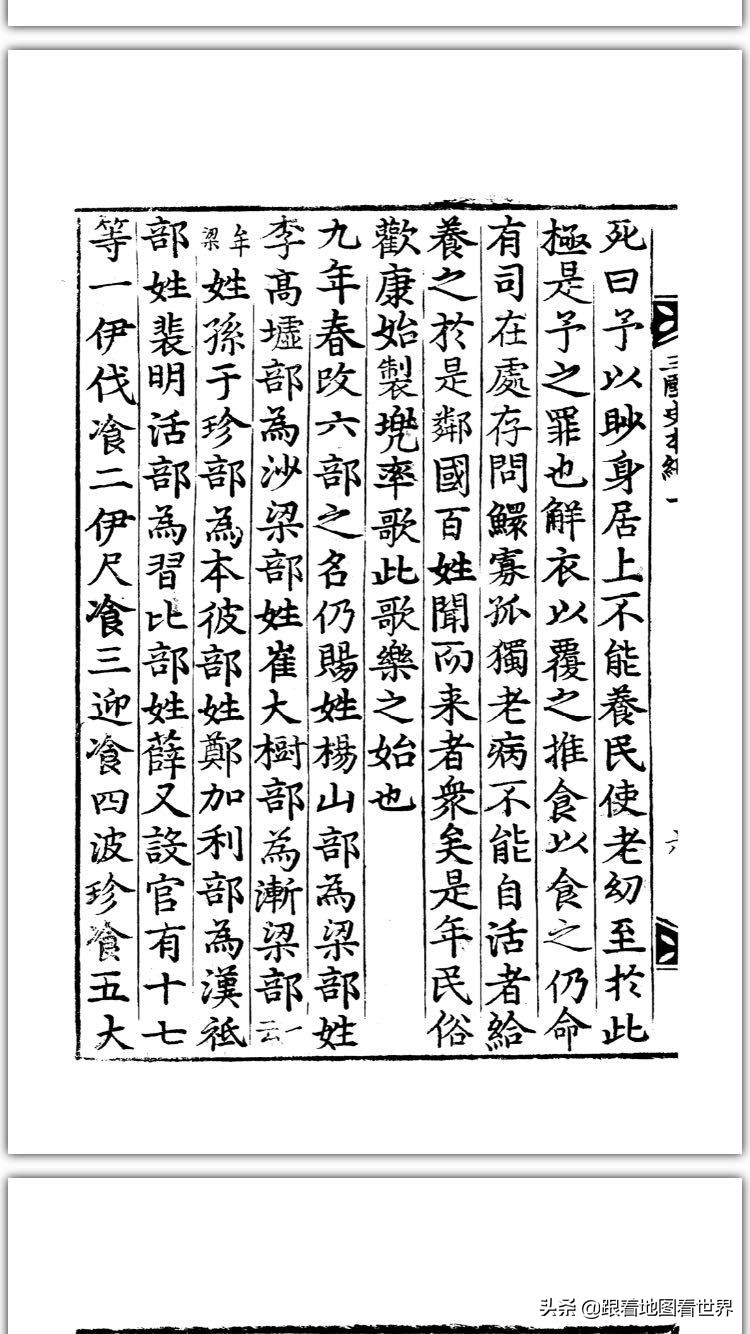 死曰予以眇身居上不能養民使老幼至扵此
極是予之罪也解衣以覆之推食以食之仍命
有司在處存問鰥寡孤獨老病不能自活者給
養之扵是鄰國百姓聞而来者衆矣是年民俗
歡康始製兠率歌此歌樂之始也
九年春改六部之名仍賜姓楊山部為梁部姓
李髙墟部為沙梁部姓崔大樹部為漸梁部一云
牟梁姓孫于珍部為本彼部姓鄭加利部為漢祇
部姓裴明活部為習比部姓薛又設官有十七
等一伊伐飡二伊尺飡三迎飡四波珍飡五大
三國史本紀一
六
头条 @跟着地图看世界